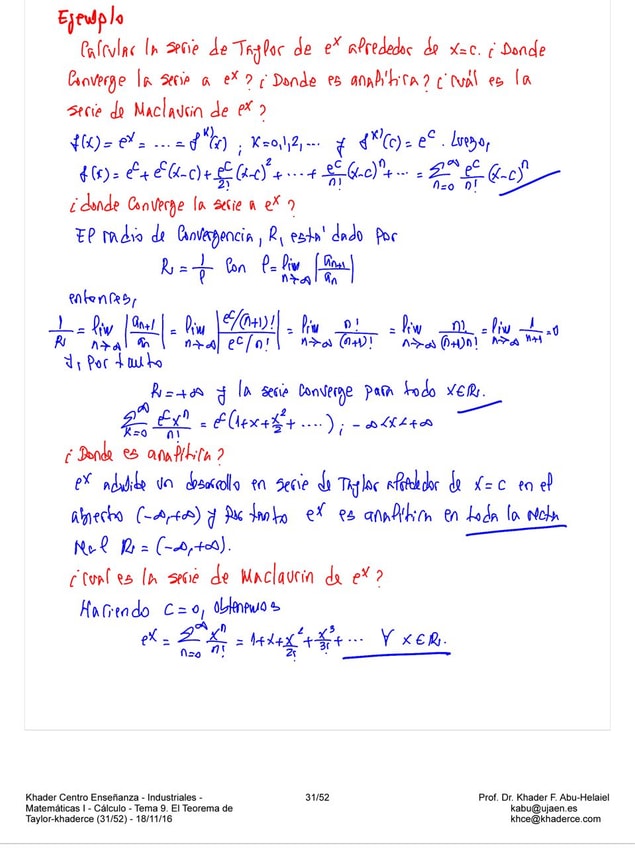 Ejemplo
Calcular la serie de Taylor de e^x alrededor de x=c. ¿Donde
Converge la serie a e^x? ¿Donde es analítica? ¿Cuál es la
serie de Maclaurin de e^x?
f(x) = e^x = ... = f^{k)}(x) ; k=0,1,2,... y f^{k)}(c) = e^c. Luego,
f(x) = e^c + e^c(x-c) + e^c/2! (x-c)^2 + ... + e^c/n! (x-c)^n + ... = ∑_{n=0}^∞ e^c/n! (x-c)^n
¿donde Converge la serie a e^x?
El radio de Convergencia, R, está dado por
R = 1/ρ Con ρ = lim_{n→∞} |a_{n+1}/a_n|
entonces,
1/R = lim_{n→∞} |a_{n+1}/a_n| = lim_{n→∞} |e^c/(n+1)! / e^c/n!| = lim_{n→∞} n!/(n+1)! = lim_{n→∞} n!/(n+1)n! = lim_{n→∞} 1/n+1 = 0
y, Por tanto
R = +∞ y la serie Converge para todo x∈R.
∑_{k=0}^∞ e^c x^n/n! = e^c(1+x+x^2/2+....) ; -∞<x<+∞
¿Donde es analítica?
e^x admite un desarrollo en serie de Taylor alrededor de x=c en el
abierto (-∞,+∞) y por tanto e^x es analítica en toda la recta
real R = (-∞,+∞).
¿Cual es la serie de Maclaurin de e^x?
Haciendo c=0, obtenemos
e^x = ∑_{n=0}^∞ x^n/n! = 1+x+x^2/2!+x^3/3!+... ∀ x∈R.
Khader Centro Enseñanza - Industriales -
Matemáticas I - Cálculo - Tema 9. El Teorema de
Taylor-khaderce (31/52) - 18/11/16
31/52
Prof. Dr. Khader F. Abu-Helaiel
kabu@ujaen.es
khce@khaderce.com